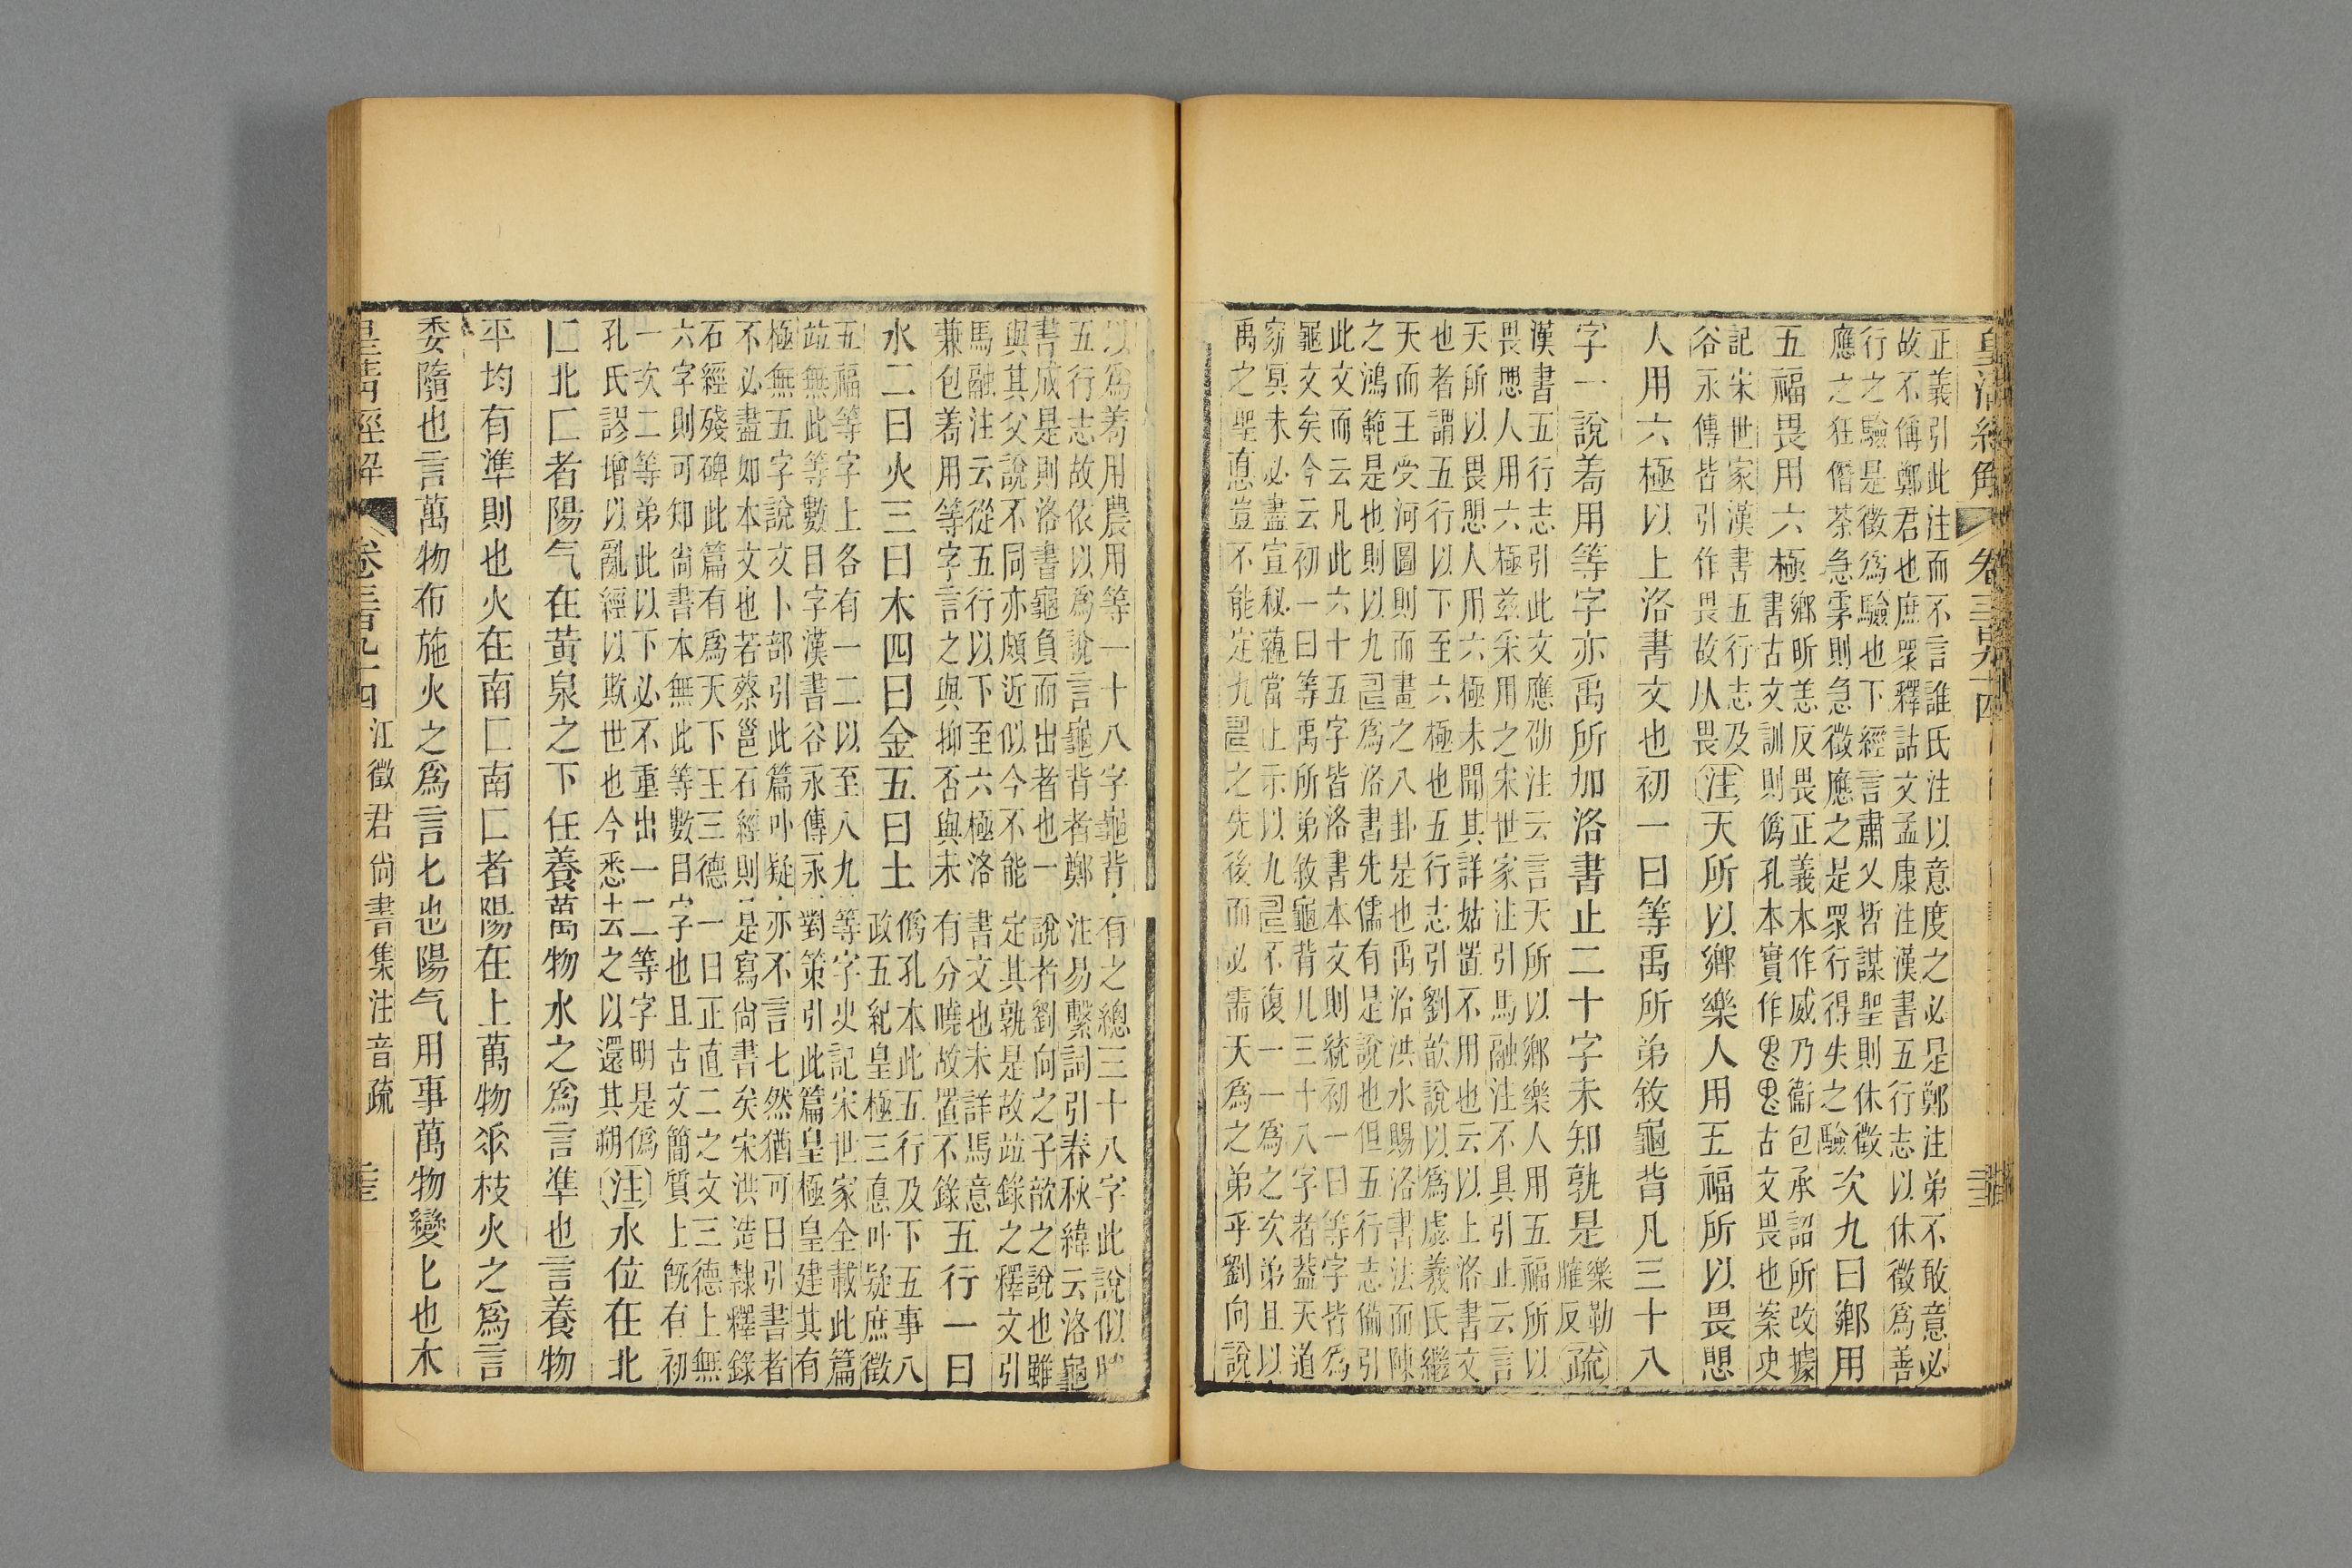 正義引此注而不言誰氏注以意度之必是鄭注弟不敢意必
故不偁鄭君也庶眾釋詁文孟康注漢書五行志以休徵爲善
行之驗是徵爲驗也下經言肅乂哲謀聖則休徵
應之狂僭荼急雺則急徵應之是眾行得失之驗
次九曰鄉用
五福畏用六極
鄉昕恙反畏正義本作威乃衞包承詔所改據
書古文訓則僞孔本實作畏畏古文畏也案史
記宋世家漢書五行志及
谷永傳皆引作畏故从畏
注天所以鄉樂人用五福所以畏愳
人用六極以上洛書文也初一曰等禹所弟敘龜背凡三十八
字一說蓍用等字亦禹所加洛書止二十字未知孰是
樂勒
雁反
疏
漢書五行志引此文應劭注云言天所以鄉樂人用五福所以
畏愳人用六極兹采用之宋世家注引馬融注不具引止云言
天所以畏愳人用六極未聞其詳姑置不用也云以上洛書文
也者謂五行以下至六極也五行志引劉歆說以爲虙羲氏繼
天而王受河圖則而畫之八卦是也禹治洪水賜洛書法而陳
之鴻範是也則以九𠃵爲洛書先儒有是說也但五行志備引
此文而云凡此六十五字皆洛書本文則統初一曰等字皆爲
龜文矣今云初一曰等禹所弟敘龜背凡三十八字者葢天道
窈冥未必盡宣秘蘊當止示以九𠃵不復一一爲之次弟且以
禹之聖悳豈不能定九𠃵之先後而必需天爲之弟乎劉向說
以爲蓍用農用等一十八字龜背有之總三十八字此說似
五行志故依以爲說言龜背者鄭注易繫詞引春秋緯云洛龜
書成是則洛書龜負而出者也一說者劉向之子歆之說也雖
與其父說不同亦頗近似今不能定其孰是故竝錄之釋文引
馬融注云從五行以下至六極洛書文也未詳馬意
兼包蓍用等字言之與抑否與未有分曉故置不錄
五行一曰
水二曰火三曰木四曰金五曰土
僞孔本此五行及下五事八
政五紀皇極三悳卟疑庶徵
五福等字上各有一二以至八九等字史記宋世家全載此篇
竝無此等數目字漢書谷永傳永對策引此篇皇極皇建其有
極無五字說文卜部引此篇卟疑亦不言七然猶可曰引書者
不必盡如本文也若蔡邕石經則是寫尚書矣宋洪造隸釋錄
石經殘碑此篇有爲天下王三德一曰正直二之文三德上無
六字則可知尙書本無此等數目字也且古文簡質上旣有初
一次二等弟此以下必不重出一二等字明是僞
孔氏謬增以亂經以欺世也今悉去之以還其朔
注水位在北
𠤬北𠤬者陽气在黃泉之下任養萬物水之爲言準也言養物
平均有準則也火在南𠤬南𠤬者陽在上萬物𠂹枝火之爲言
委隨也言萬物布施火之爲言匕也陽气用事萬物變匕也木
江徵君尙書集注音疏